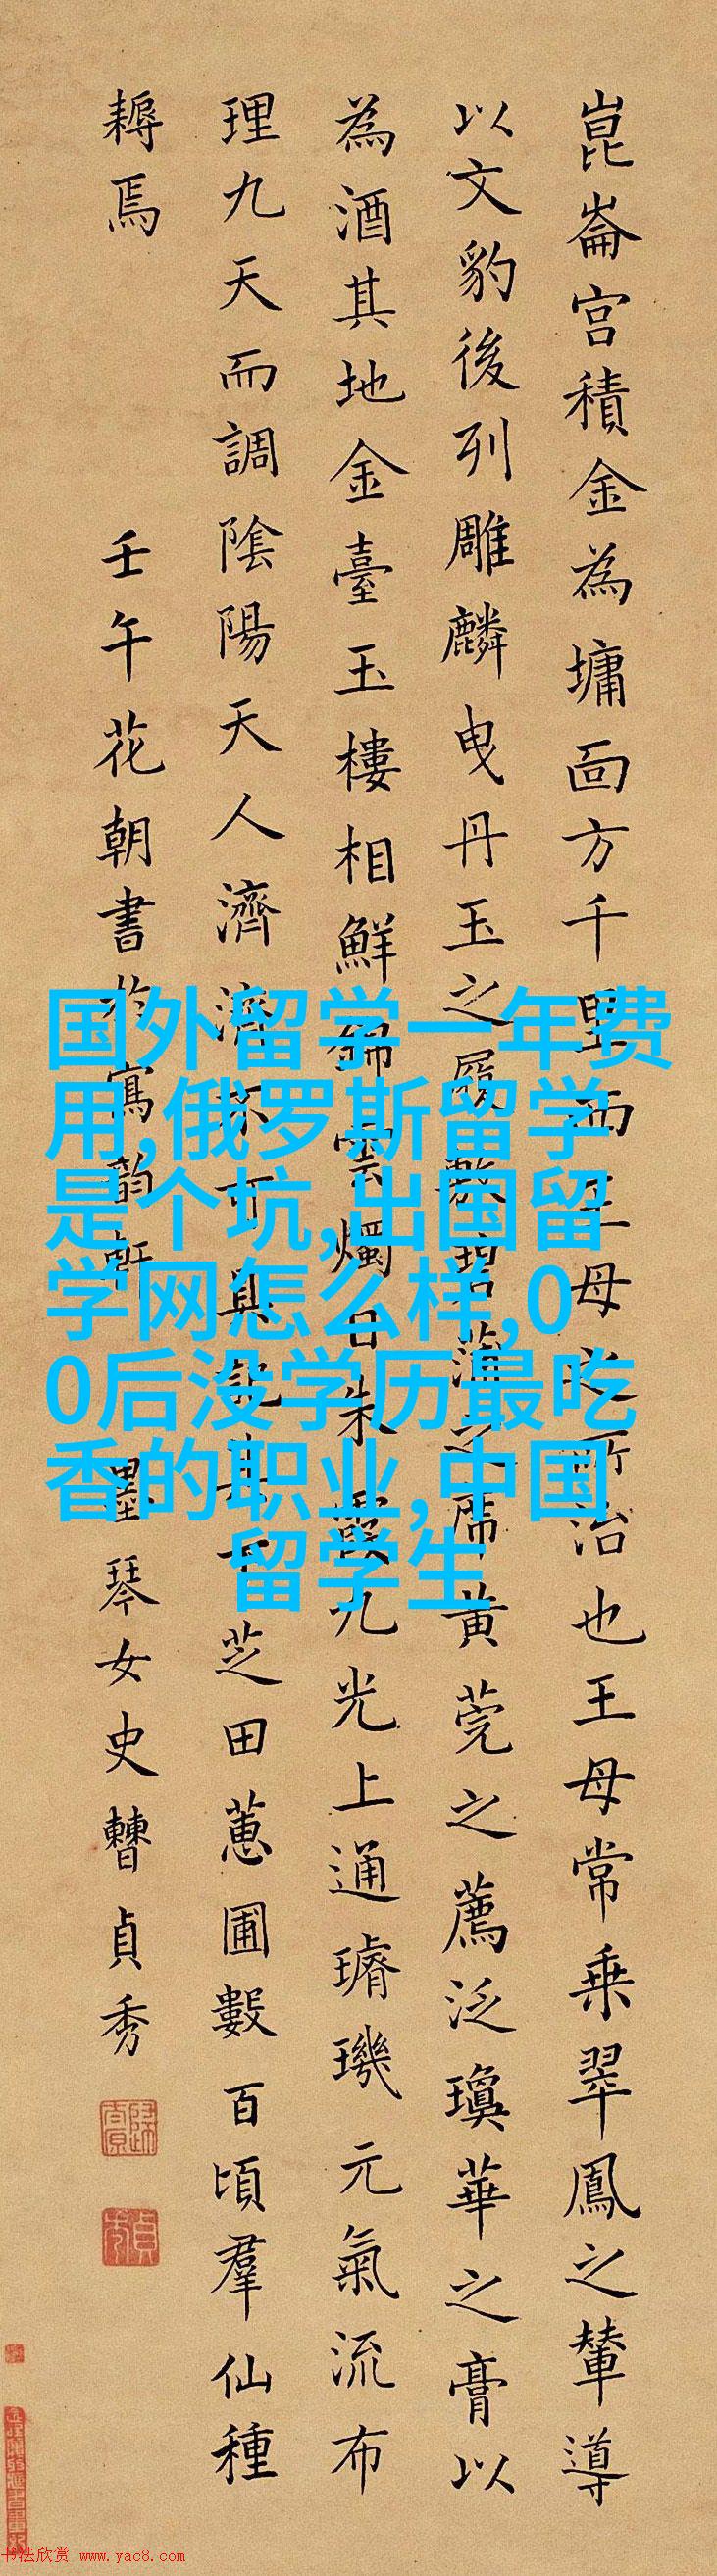 崑崙宮積金為墉面方千里西王母之所治也王母常乗翠鳳之輦導
以文豹後列雕麟曳丹玉之履敷碧蒲之席黄莞之薦泛瓊華之膏以
為酒其地金臺玉樓相鮮雲燭日朱霞九光上通璿璣元氣流布
理九天而調陰陽天人濟濟不可具記其下芝田蕙圃數百頃羣仙種
耨焉
壬午花朝書於寫韵軒
墨琴女史曹貞秀
国外留学一年费
用,俄罗斯留学
是个坑,出国留
学网怎么样,0
0后没学历最吃
香的职业,中国
留学生
书法欣赏 www.yac8.com